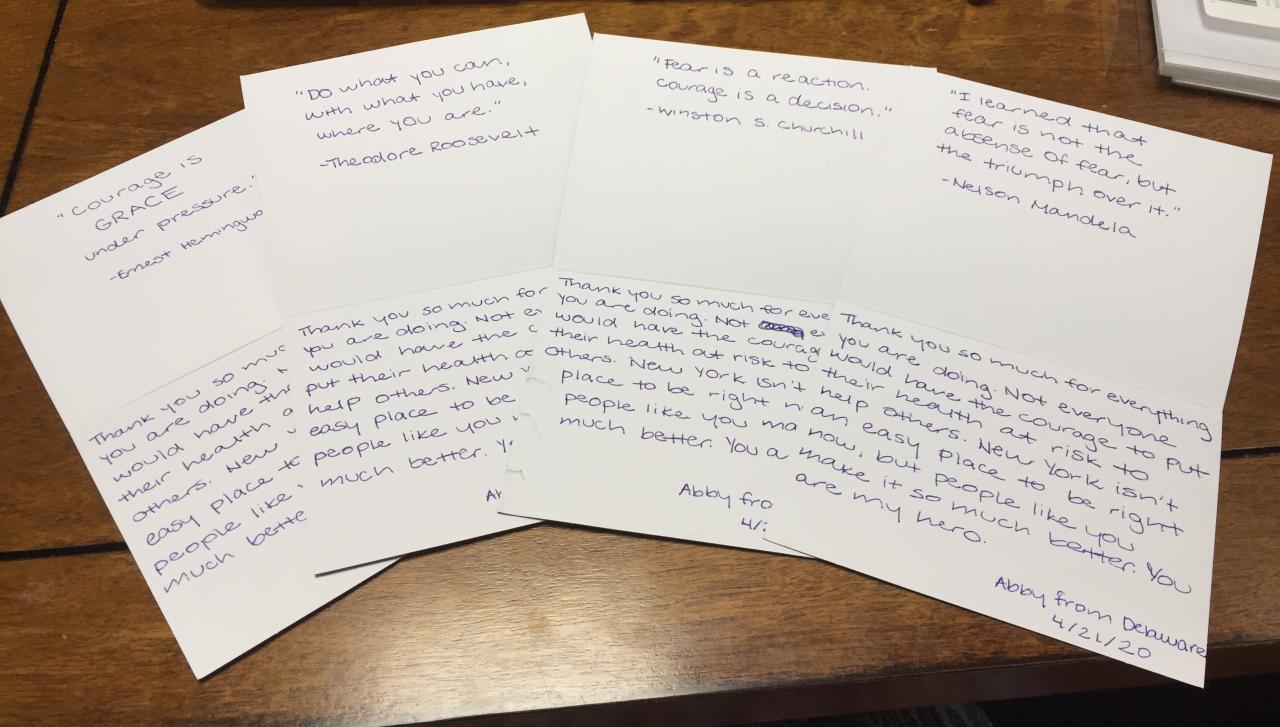 "Courage is
GRACE
under pressure."
-Ernest Hemingwo
Thank you so muc
you are doing.
would have th
their health a
others. New
easy place to
people like
much bette
"Do what you can,
with what you have,
where you are."
-Theodore Roosevelt
Thank you so much for
you are doing. Not e
would have the c
put their health a
help others. New
easy place to be
people like you
much better. Y
"Fear is a reaction.
courage is a decision."
-Winston S. Churchill
Thank you so much for eve
you are doing. Not e
would have the courag
their health at risk to
others. New York isn't
place to be right n
people like you ma
much better. You a
Abby fro
4/
"I learned that
fear is not the
absense of fear, but
the triumph over it."
-Nelson Mandela
Thank you so much for everything
you are doing. Not everyone
would have the courage to put
their health at risk to
help others. New York isn't
an easy place to be right
now, but people like you
make it so much better. You
are my hero.
Abby from Delaware
4/21/20